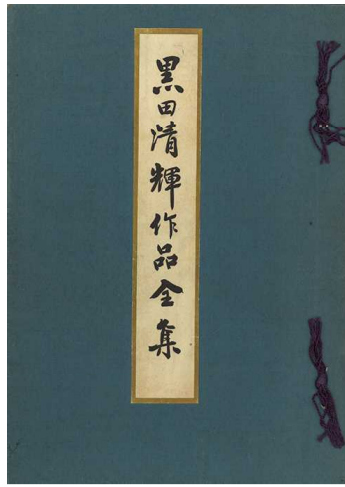 黒田清輝作品全集